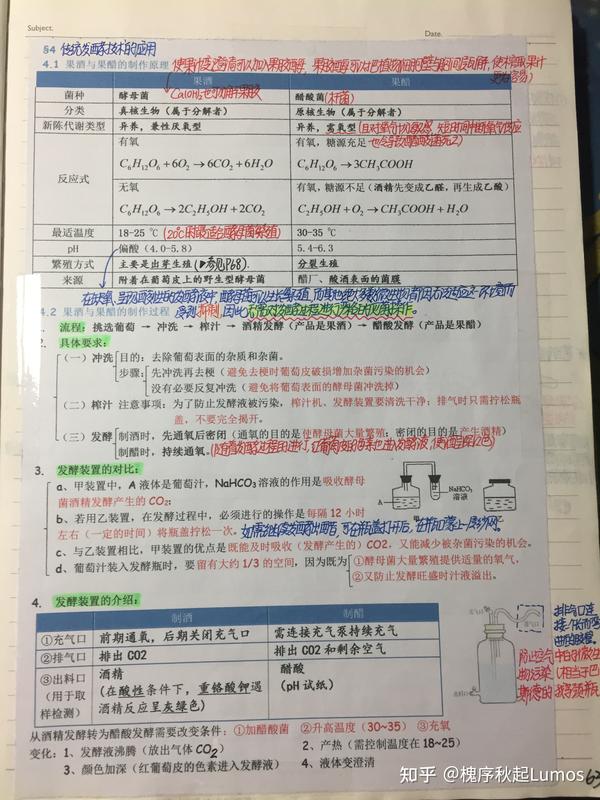 Subject:
Date.
§4 传统发酵技术的应用
4.1 果酒与果醋的制作原理
果酒 果醋
菌种 酵母菌 醋酸菌(杆菌)
分类 真核生物（属于分解者） 原核生物（属于分解者）
新陈代谢类型 异养，兼性厌氧型 异养，需氧型
反应式
有氧 有氧，糖源充足
C₆H₁₂O₆+6O₂→6CO₂+6H₂O C₆H₁₂O₆→3CH₃COOH
无氧 有氧，糖源不足（酒精先变成乙醛，再生成乙酸）
C₆H₁₂O₆→2C₂H₅OH+2CO₂ C₂H₅OH+O₂→CH₃COOH+H₂O
最适温度 18-25 ℃(20℃时最适合酵母菌繁殖) 30-35 ℃
pH 偏酸（4.0-5.8） 5.4-6.3
繁殖方式 主要是出芽生殖(▶参见P68). 分裂生殖
来源 附着在葡萄皮上的野生型酵母菌 醋厂、酸酒表面的菌膜
4.2 果酒与果醋的制作过程
流程：挑选葡萄 → 冲洗 → 榨汁 → 酒精发酵（产品是果酒）→ 醋酸发酵（产品是果醋）
具体要求：
（一）冲洗 目的：去除葡萄表面的杂质和杂菌。
步骤：先冲洗再去梗（避免去梗时葡萄皮破损增加杂菌污染的机会）
没有必要反复冲洗（避免将葡萄表面的酵母菌冲洗掉）
（二）榨汁 注意事项：为了防止发酵液被污染，榨汁机、发酵装置要清洗干净；排气时只需拧松瓶
盖，不要完全揭开。
（三）发酵 制酒时，先通氧后密闭（通氧的目的是使酵母菌大量繁殖；密闭的目的是产生酒精）
制醋时，持续通氧。
3. 发酵装置的对比：
a、甲装置中，A 液体是葡萄汁，NaHCO₃溶液的作用是吸收酵母
菌酒精发酵产生的 CO₂；
A
NaHCO₃
溶液
b、若用乙装置，在发酵过程中，必须进行的操作是每隔 12 小时
左右（一定的时间）将瓶盖拧松一次。
c、与乙装置相比，甲装置的优点是既能及时吸收（发酵产生的）CO2，又能减少被杂菌污染的机会。
d、葡萄汁装入发酵瓶时，要留有大约 1/3 的空间，因为既为 ①酵母菌大量繁殖提供适量的氧气，
②又防止发酵旺盛时汁液溢出。
4. 发酵装置的介绍：
制酒 制醋
①充气口 前期通氧，后期关闭充气口 需连接充气泵持续充气
②排气口 排出 CO2 排出 CO2 和剩余空气
③出料口（用于取样检测） 酒精（在酸性条件下，重铬酸钾遇酒精反应呈灰绿色） 醋酸（pH 试纸）
充气口
排气口
出料口
从酒精发酵转为醋酸发酵需要改变条件：①加醋酸菌 ②升高温度（30~35） ③充氧
变化：1、发酵液沸腾（放出气体CO₂） 2、产热（需控制温度在 18~25）
3、颜色加深（红葡萄皮的色素进入发酵液） 4、液体变澄清
知乎 @槐序秋起Lumos